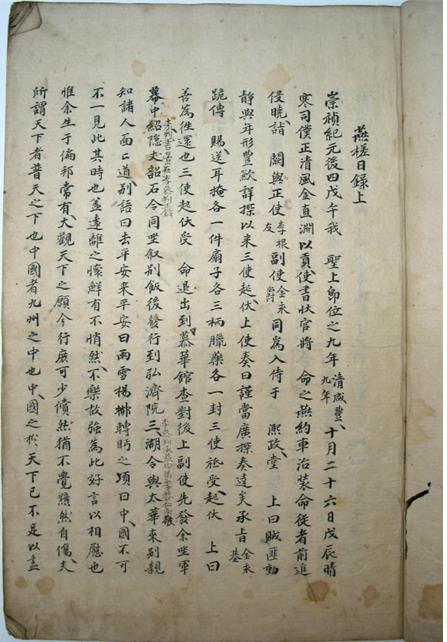 燕槎日錄上
崇禎紀元後四戊午我 聖上卽位之九年淸咸豊九年十月二十六日戊辰晴
寒司僕正淸風金直淵以貢使書狀官將 命之燕約車治裝命從者前進
侵曉詣 闕與正使李根友副使金永爵同爲入侍于 熙政堂 上曰賊匪動
靜與年形豊歉詳探以來三使起伏上使奏曰謹當廣探奏達矣承旨金永基
跪傳 賜送耳掩各一件扇子各三柄臘藥各一封三使祗受起伏 上曰
善爲徃還也三使起伏受 命退出到慕華館查對後上副使先發余坐軍
幕中紹隱文韶石令同坐叙別飯後發行到弘濟院三湖令與太華來別親
知諸人面面道別語曰去平安來平安曰雨雪楊柳轉眄之頃曰中國不可
不一見此其時也盖遠離之懷鮮有不悄然不樂故強爲此好言以相慰也
惟余生于偏邦常有大觀天下之願今行庶可少償然猶不覺黯然自傷夫
所謂天下者普天之下也中國者九州之中也中國之於天下已不足以盖